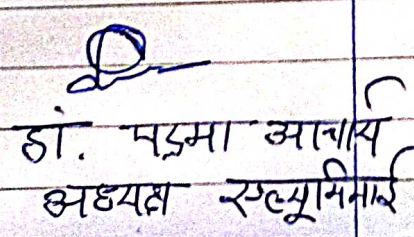 डॉ. पद्मा आचार्य
अध्यक्ष एल्यूमिनाई